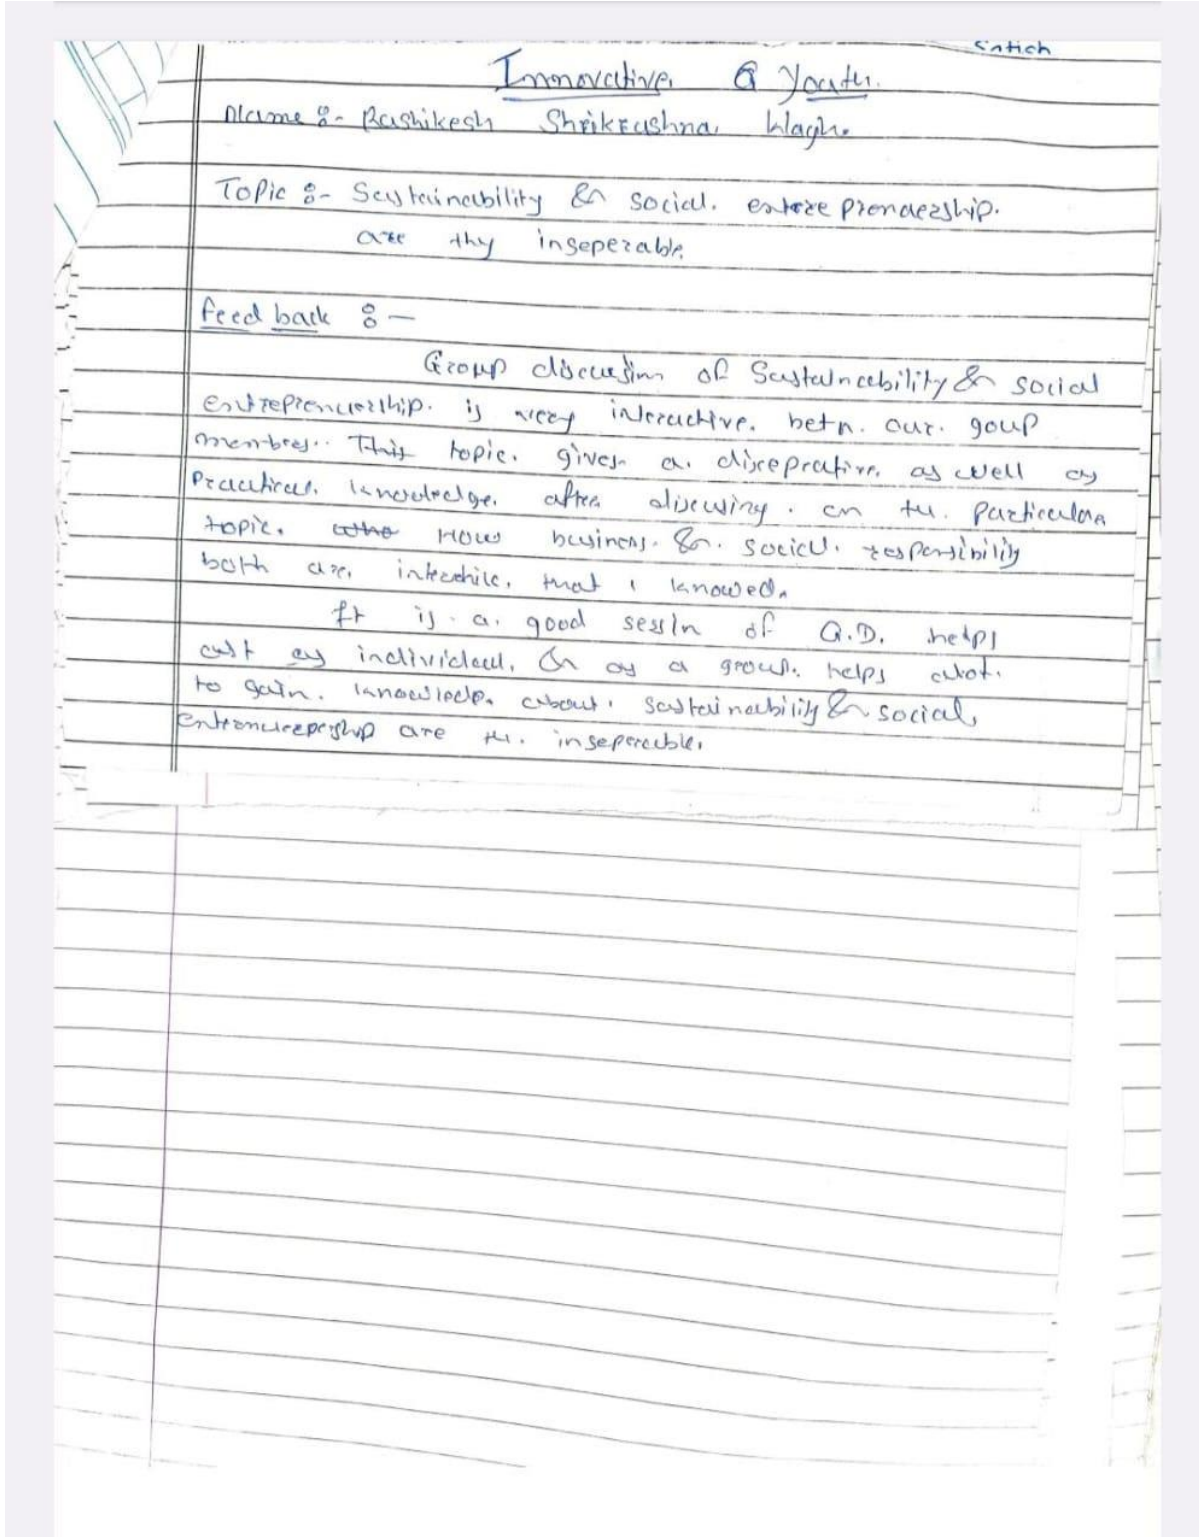 Satich
Innovative & Youth.
Name :- Rushikesh Shrikrushna Wagh.
Topic :- Sustainability & social. entrepreneurship.
are thy inseperable.
feed back :-
Group discussion of Sustaincebility & social
entreprencurship. is very interactive. betn. our. goup
membres.. This topic. gives a. discreprative. as well as
Practical. knowledge. after discusing. on the. particular
topic. How business. & social. responsibility
both are. that i knowed.
It is. a. good sessin of G.D. helps
as individual, & as a group. helps alot.
to gain. knowlede. about. sustainability & social,
are the. inseperable.